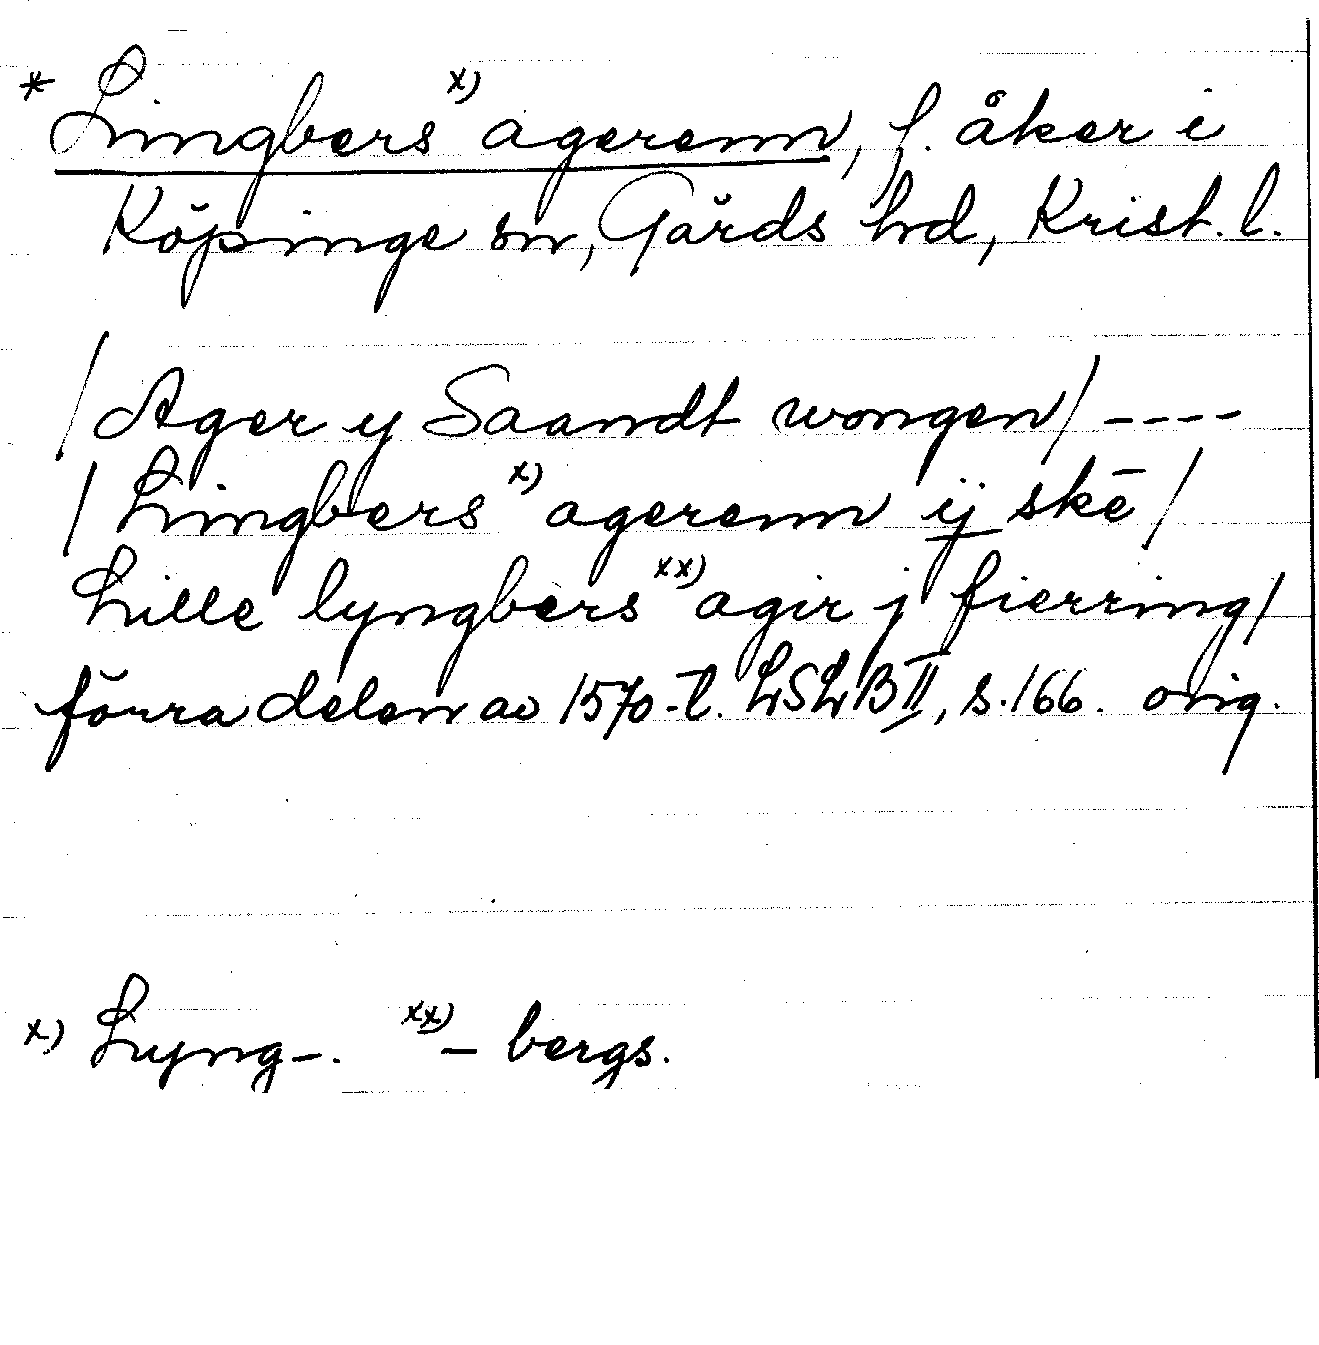 * Lingbers x) agerenn, f. åker i
Köpinge sn, Gärds hd, Krist. l.
/Ager y Saandt wongen/ ----
/ Lingbers x) agerenn ij skē /
Lille lyngbers xx) agir j fierring/
förra delen av 1570-t. LSLB II, s.166. orig.
x) Lyng-. xx) - bergs.